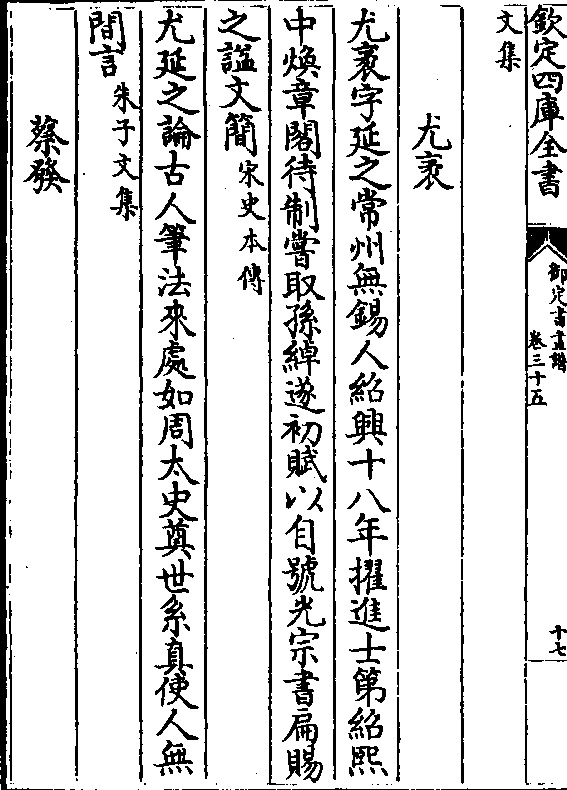 欽定四庫全書
御定書畫譜
卷三十五
十七
文集
尤袤
尤袤字延之常州無錫人紹興十八年擢進士第紹熙
中煥章閣待制嘗取孫綽遂初賦以自號光宗書扁賜
之諡文簡宋史本傳
尤延之論古人筆法來處如周太史奠世系真使人無
間言朱子文集
蔡發